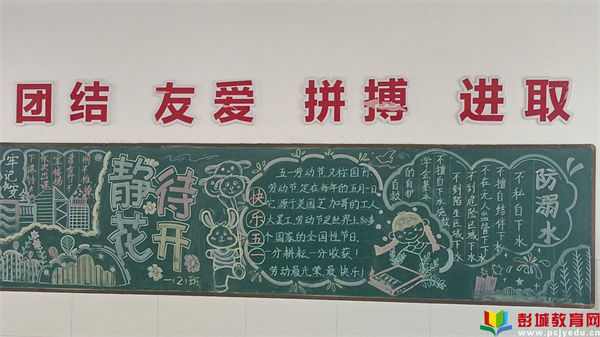 团结 友爱 拼搏 进取
静待花开
一(2)班
快乐五一
五一劳动节又称国际
劳动节定在每年的五月一日
它源于美国芝加哥的工人
大罢工,劳动节是世界上80多
个国家的全国性节日。
一分耕耘一分收获!
劳动最光荣、最快乐!
防溺水
不私自下水
不擅自结伴下水
不在无人监管下下水
不到危险区域下水
不到陌生区域下水
不擅自下水施救
学会基本
的自护
自救
彭城教育网
www.pcjyedu.cn